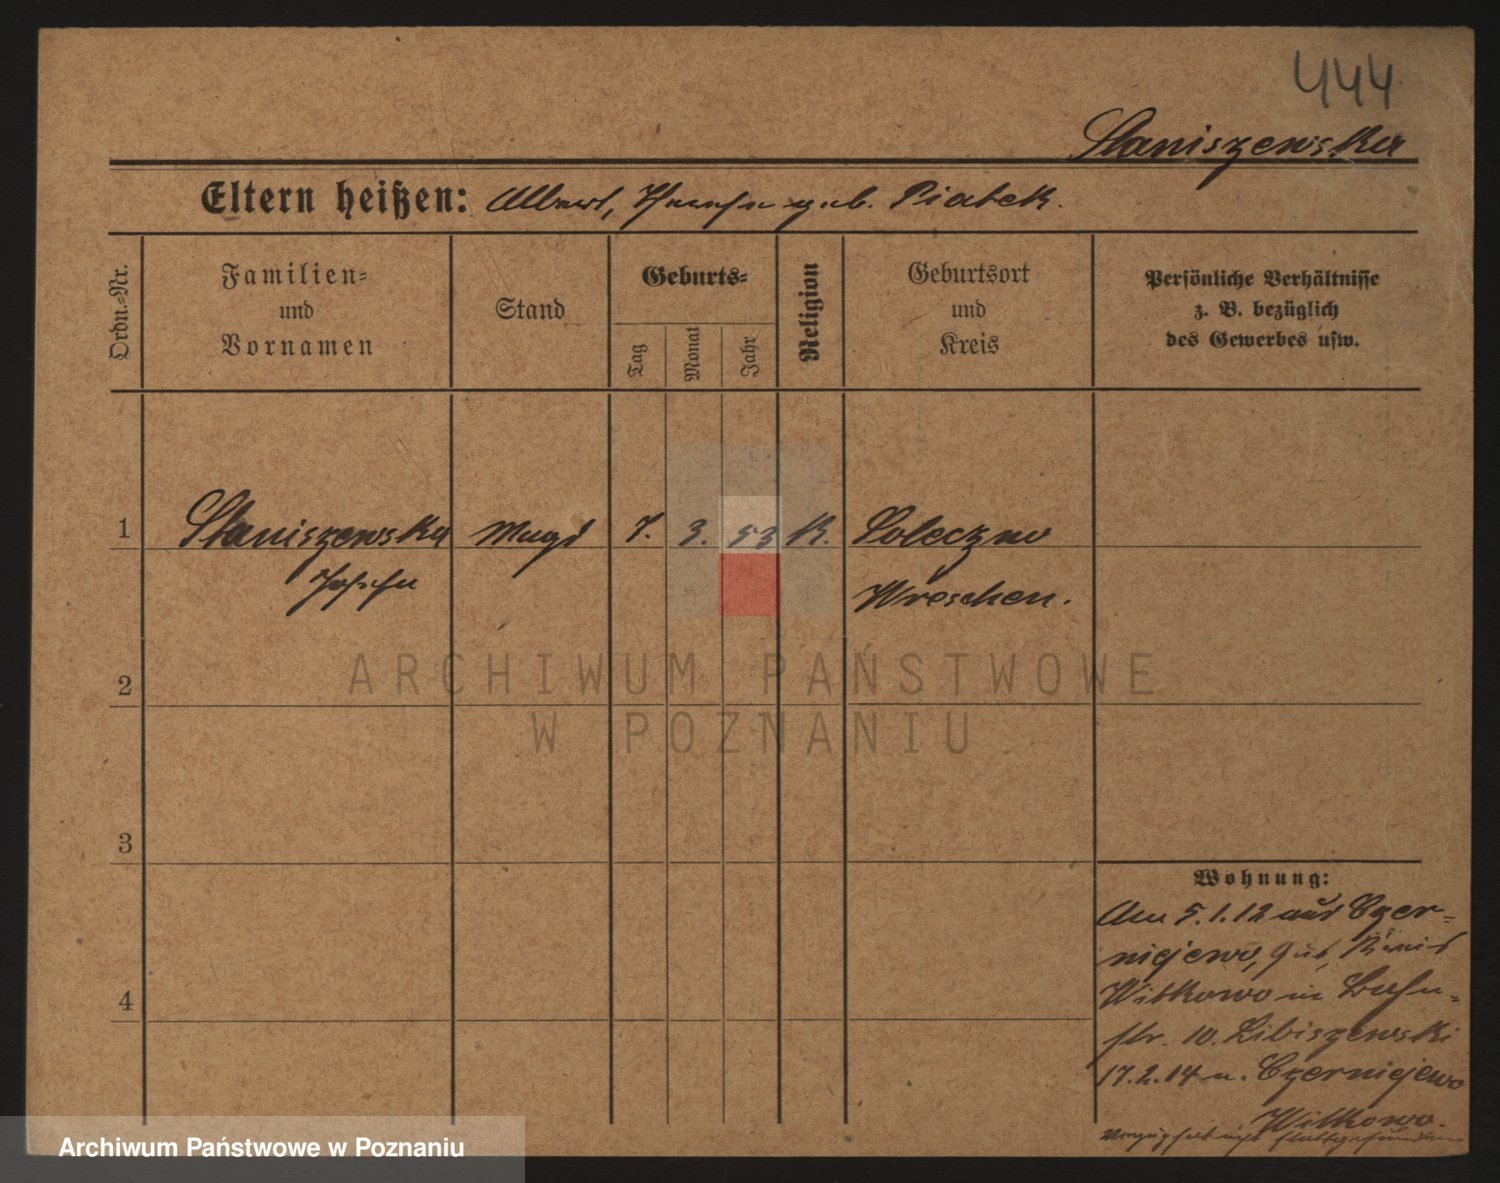 444
Staniszewska
Eltern heißen: Albert, geb. Piatek.
Ordn.-Nr.
Familien-
und
Vornamen
Stand
Geburts-
Tag
Monat
Jahr
Religion
Geburtsort
und
Kreis
Persönliche Verhältnisse
z. B. bezüglich
des Gewerbes usw.
1 Staniszewska Magd 7. 3. 53 K.
Josefa Wreschen.
2
ARCHIWUM PAŃSTWOWE
W POZNANIU
3
Wohnung:
Am 5.1.12 aus Czer-
niejewo, Gut, Kreis
Witkowo in Bahn-
str. 10. Libiszewski
17.2.14 n. Czerniejewo
4
Witkowo.
stattgefunden
Archiwum Państwowe w Poznaniu